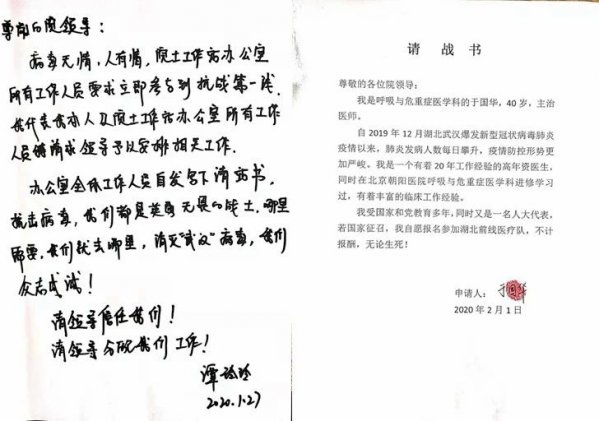 尊敬的院领导：
病毒无情，人有情，院士工作站办公室
所有工作人员要求立即参与到抗战第一线，
我代表我本人及院士工作站办公室所有工作
人员请求领导予以安排相关工作。
办公室全体工作人员自发写下请战书，
抗击病毒，我们都是英勇无畏的战士，哪里
需要，我们就去哪里，消灭“武汉”病毒，我们
众志成城！
请领导信任我们！
请领导分配我们工作！
谭玲玲
2020.1.27
请 战 书
尊敬的各位院领导：
我是呼吸与危重症医学科的于国华，40 岁，主治
医师。
自 2019 年 12 月湖北武汉爆发新型冠状病毒肺炎
疫情以来，肺炎发病人数每日攀升，疫情防控形势更
加严峻。我是一个有着 20 年工作经验的高年资医生，
同时在北京朝阳医院呼吸与危重症医学科进修学习
过，有着丰富的临床工作经验。
我受国家和党教育多年，同时又是一名人大代表，
若国家征召，我自愿报名参加湖北前线医疗队，不计
报酬，无论生死！
申请人：于国华
2020 年 2 月 1 日